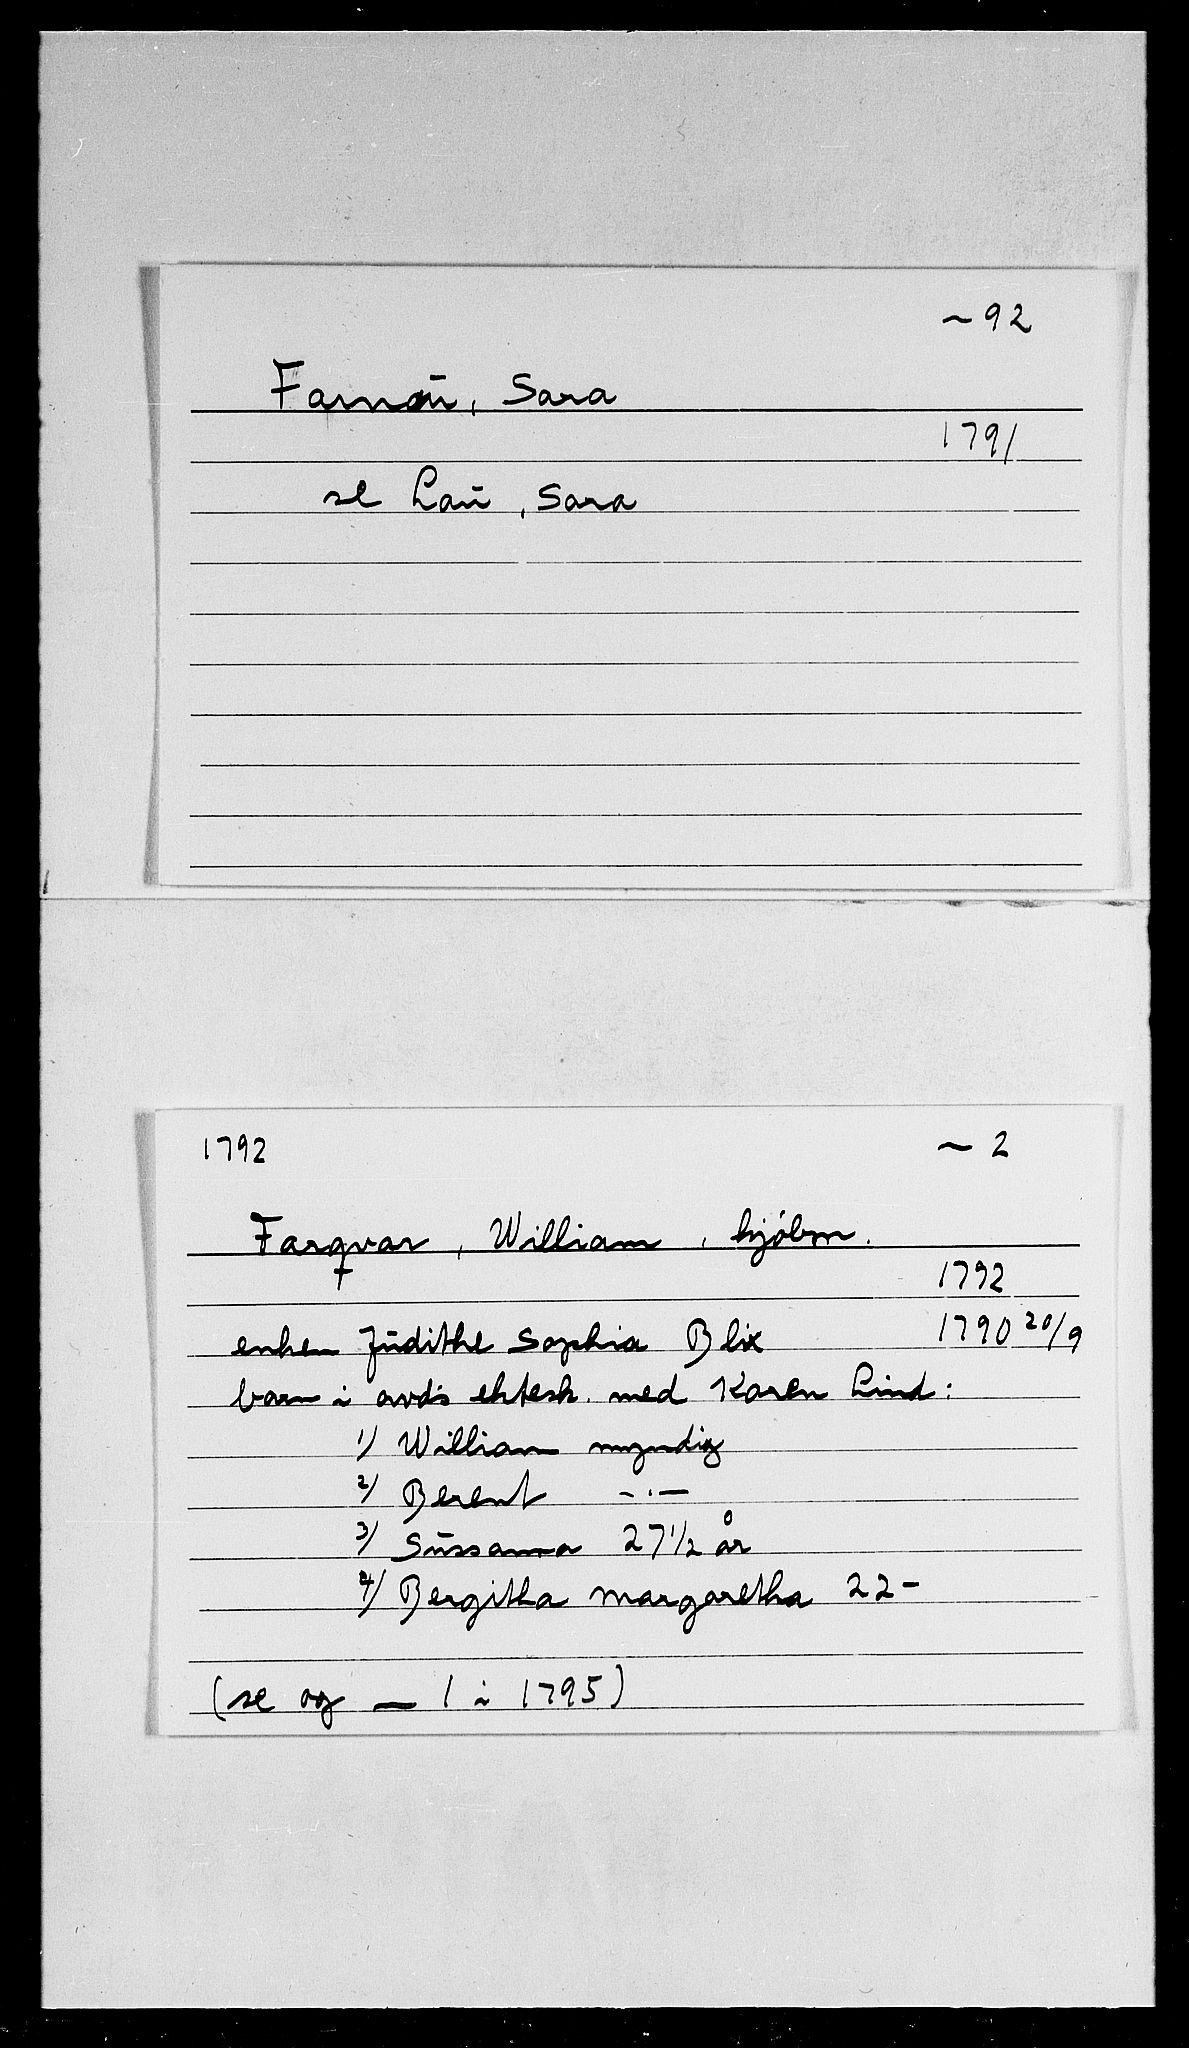 ~ 92
Farnaū, Sara
1791
se Laū, Sara
1792 ~ 2
Farqvar, William, kjöbm.
† 1792
enken Jūdithe Sophia Blix 1790 20/9
barn i avd's ektesk. med Karen Lind:
1) William myndig
2) Berent -·-
3) Sūssanna 27 1/2 år
4) Bergitha Margaretha 22 -
(se og — 1 i 1795)